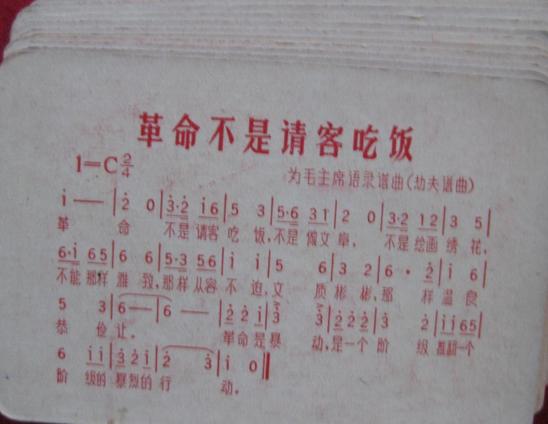 革命不是请客吃饭
1=C 2/4
为毛主席语录谱曲(劫夫谱曲)
i — | 2 0 | 3·2 i 6 | 5 3 | 5·6 3 1 | 2 0 | 3·2 1 2 | 3 5 |
革 命 不是 请客 吃 饭, 不是 做文 章, 不是 绘画 绣 花,
6·i 6 5 | 6 6 | 5·3 5 6 | i i | 5 6 | 3 2 | 6 · 2 | i 6 |
不能 那样 雅 致, 那样 从容 不 迫, 文 质 彬 彬, 那 样 温 良
5 3 | 6 — | 6 — | 2 2 i 3 | 3 2 2 2 | 3 2 | i i 6 5 |
恭 俭 让。 革命 是暴 动, 是一个 阶 级 推翻 一个
6 i i | 3 2 i | 2 3 | i 0 ‖
阶 级的 暴烈的 行 动。